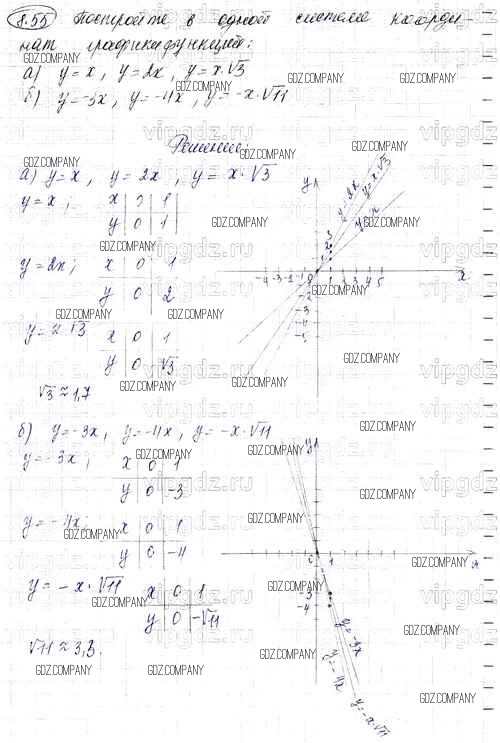 8.55 Постройте в одной системе коорди-
нат графики функций:
а) y=x, y=2x, y=x·√3
б) y=-3x, y=-4x, y=-x·√11
Решение:
а) y=x, y=2x, y=x·√3
y=x; x 0 1
y 0 1
y=2x; x 0 1
y 0 2
y=x√3 x 0 1
y 0 √3
√3≈1,7
y
y=2x
y=x·√3
y=x
3
2
1
-4 -3 -2 -1 0 1 2 3 4 5 x
-2
-3
-4
-5
б) y=-3x, y=-4x, y=-x·√11
y=-3x; x 0 1
y 0 -3
y=-4x; x 0 1
y 0 -4
y=-x·√11 x 0 1
y 0 -√11
√11≈3,3.
y
0 1 x
-3
-4
y=-3x
y=-4x
y=-x·√11
GDZ.COMPANY
vipgdz.ru